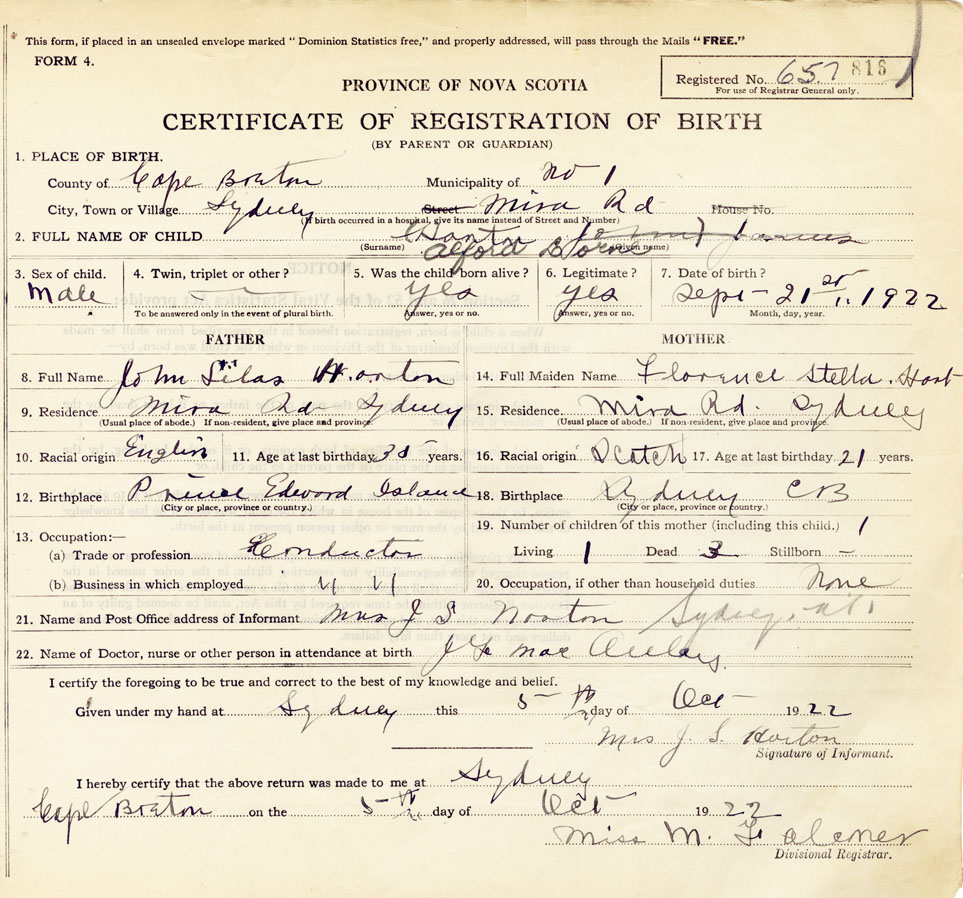 This form, if placed in an unsealed envelope marked " Dominion Statistics free," and properly addressed, will pass through the Mails "FREE."
FORM 4.
Registered No. 657 816
For use of Registrar General only.
PROVINCE OF NOVA SCOTIA
CERTIFICATE OF REGISTRATION OF BIRTH
(BY PARENT OR GUARDIAN)
1. PLACE OF BIRTH.
County of Cape Breton Municipality of No 1
City, Town or Village Sydney Street Mira Rd House No.
(If birth occurred in a hospital, give its name instead of Street and Number)
2. FULL NAME OF CHILD Horton James
(Surname) Alford (Given name)
3. Sex of child. 4. Twin, triplet or other? 5. Was the child born alive? 6. Legitimate? 7. Date of birth?
Male — yes yes Sept - 21 st 1922
To be answered only in the event of plural birth. Answer, yes or no. Answer, yes or no. Month, day, year.
FATHER MOTHER
8. Full Name John Silas Horton 14. Full Maiden Name Florence Stella
9. Residence Mira Rd Sydney 15. Residence Mira Rd. Sydney
(Usual place of abode.) If non-resident, give place and province. (Usual place of abode.) If non-resident, give place and province.
10. Racial origin English 11. Age at last birthday years. 16. Racial origin Scotch 17. Age at last birthday 21 years.
12. Birthplace Prince Edward Island 18. Birthplace Sydney CB
(City or place, province or country.) (City or place, province or country.)
19. Number of children of this mother (including this child.) 1
13. Occupation:—
(a) Trade or profession Conductor Living 1 Dead 3 Stillborn –
(b) Business in which employed " " 20. Occupation, if other than household duties None
21. Name and Post Office address of Informant Mrs J S Horton Sydney.
22. Name of Doctor, nurse or other person in attendance at birth
I certify the foregoing to be true and correct to the best of my knowledge and belief.
Given under my hand at Sydney this 5 th day of Oct 1922
Mrs J. S. Horton
Signature of Informant.
I hereby certify that the above return was made to me at Sydney
Cape Breton on the 5 th day of Oct 1922
Miss M. Falconer
Divisional Registrar.